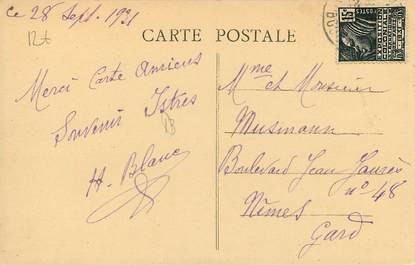 ce 28 Sept. 1931
12t
CARTE POSTALE
POSTES
15c
Merci Carte Amiens
Souvenir Istres
H. Blanc
Mme et Monsieur
Musmann
Boulevard Jean Jaurès
n° 48
Nîmes
Gard